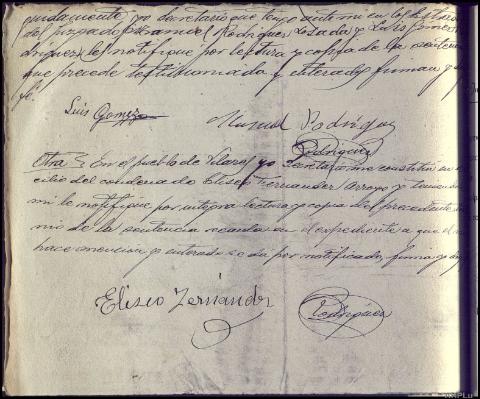 guidamente, yo Secretario que tengo ante mi en los
del juzgado a Manuel Rodriguez Lozada y Luis Gomez
driguez les notifique por lectura y copia de la sentencia
que precede testimoniada y enterados firman y
fé.
Luis Gomez
Manuel Rodriguez
Rodriguez
Otra En el pueblo de yo Secretario me constitui en
cilio del condenado Eliseo Fernandez Arroyo y
mi le notifique por integra lectura y copia del precedente
mio de la sentencia recaida en el expediente a que el
hace mencion y enterado se da por notificado, firma y
Eliseo Fernández
Rodriguez